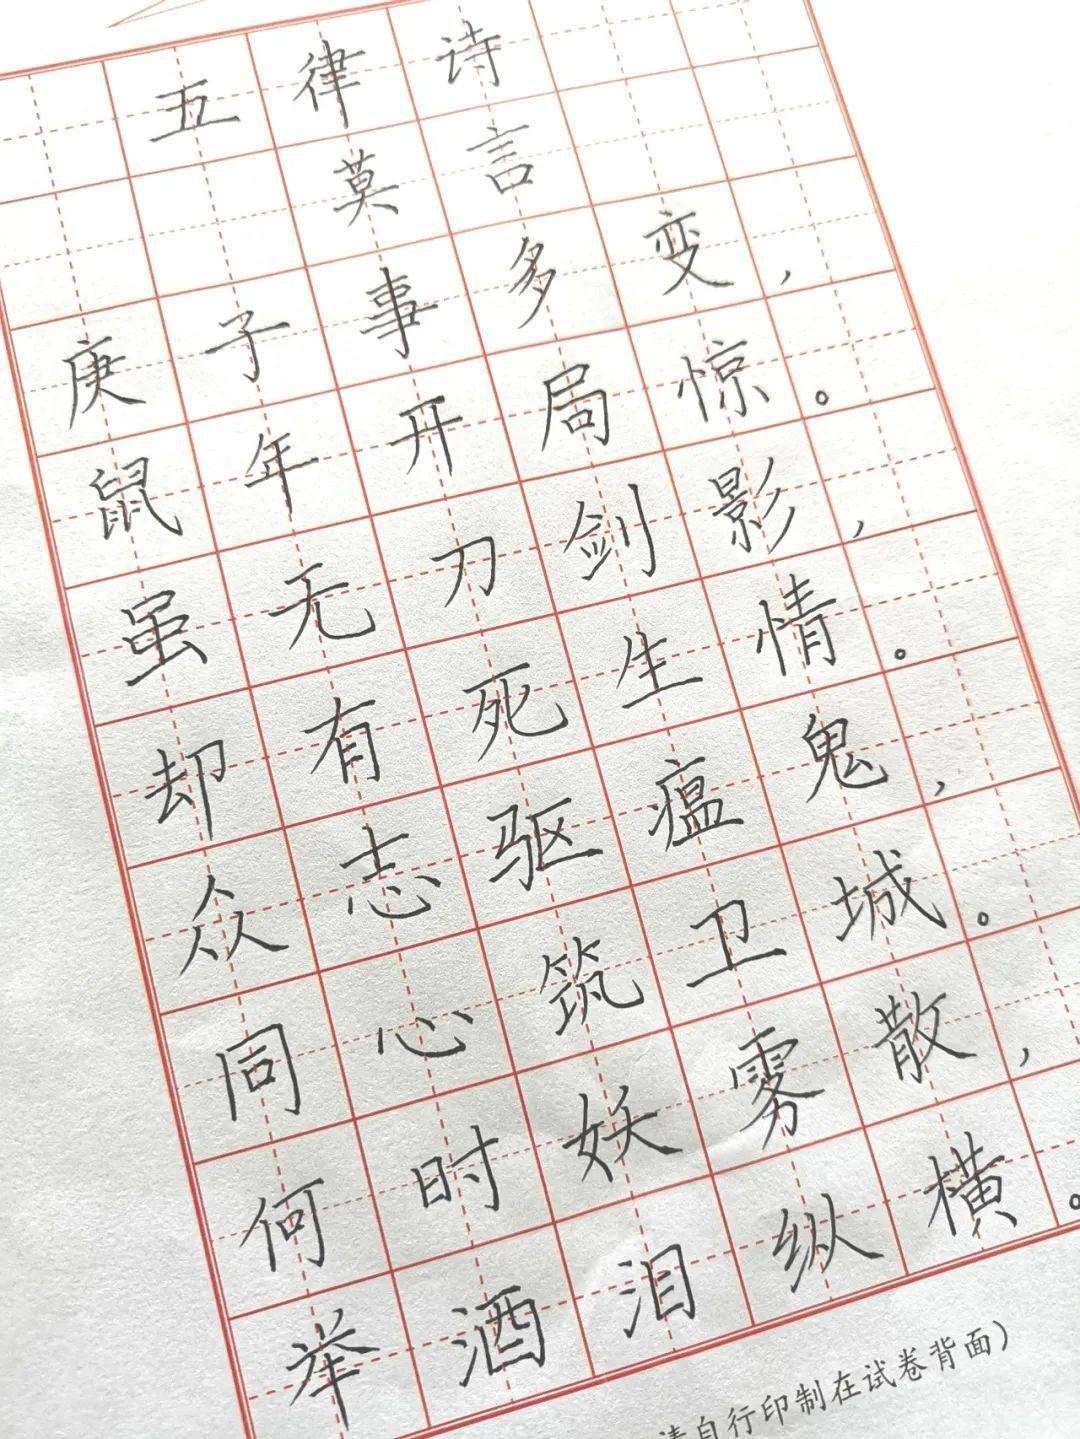 五律诗
莫言
庚子事多变，
鼠年开局惊。
虽无刀剑影，
却有死生情。
众志驱瘟鬼，
同心筑卫城。
何时妖雾散，
举酒泪纵横。
请自行印制在试卷背面）